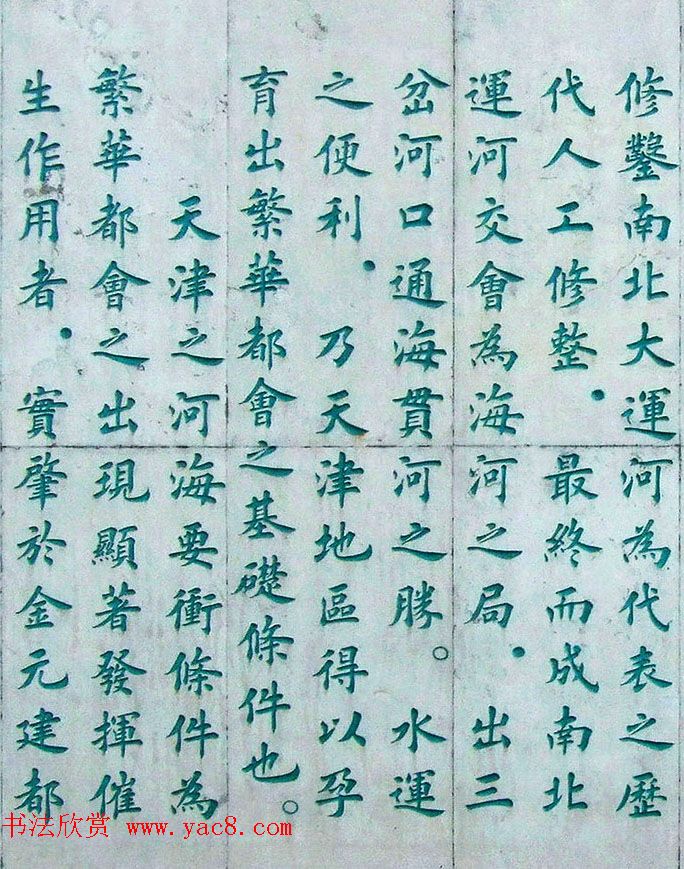 修鑿南北大運河為代表之歷
代人工修整．最終而成南北
運河交會為海河之局．出三
岔河口通海貫河之勝。水運
之便利．乃天津地區得以孕
育出繁華都會之基礎條件也。
天津之河海要衝條件為
繁華都會之出現顯著發揮催
生作用者．實肇於金元建都
书法欣赏 www.yac8.com